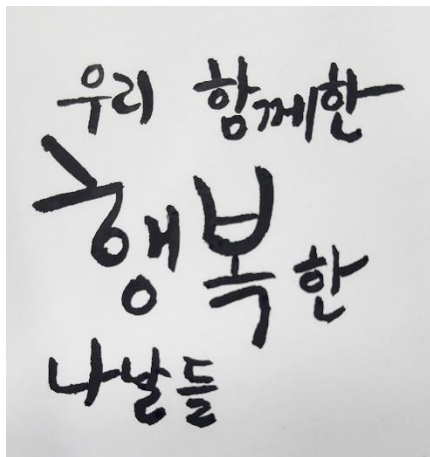 우리 함께한
행복한
나날들